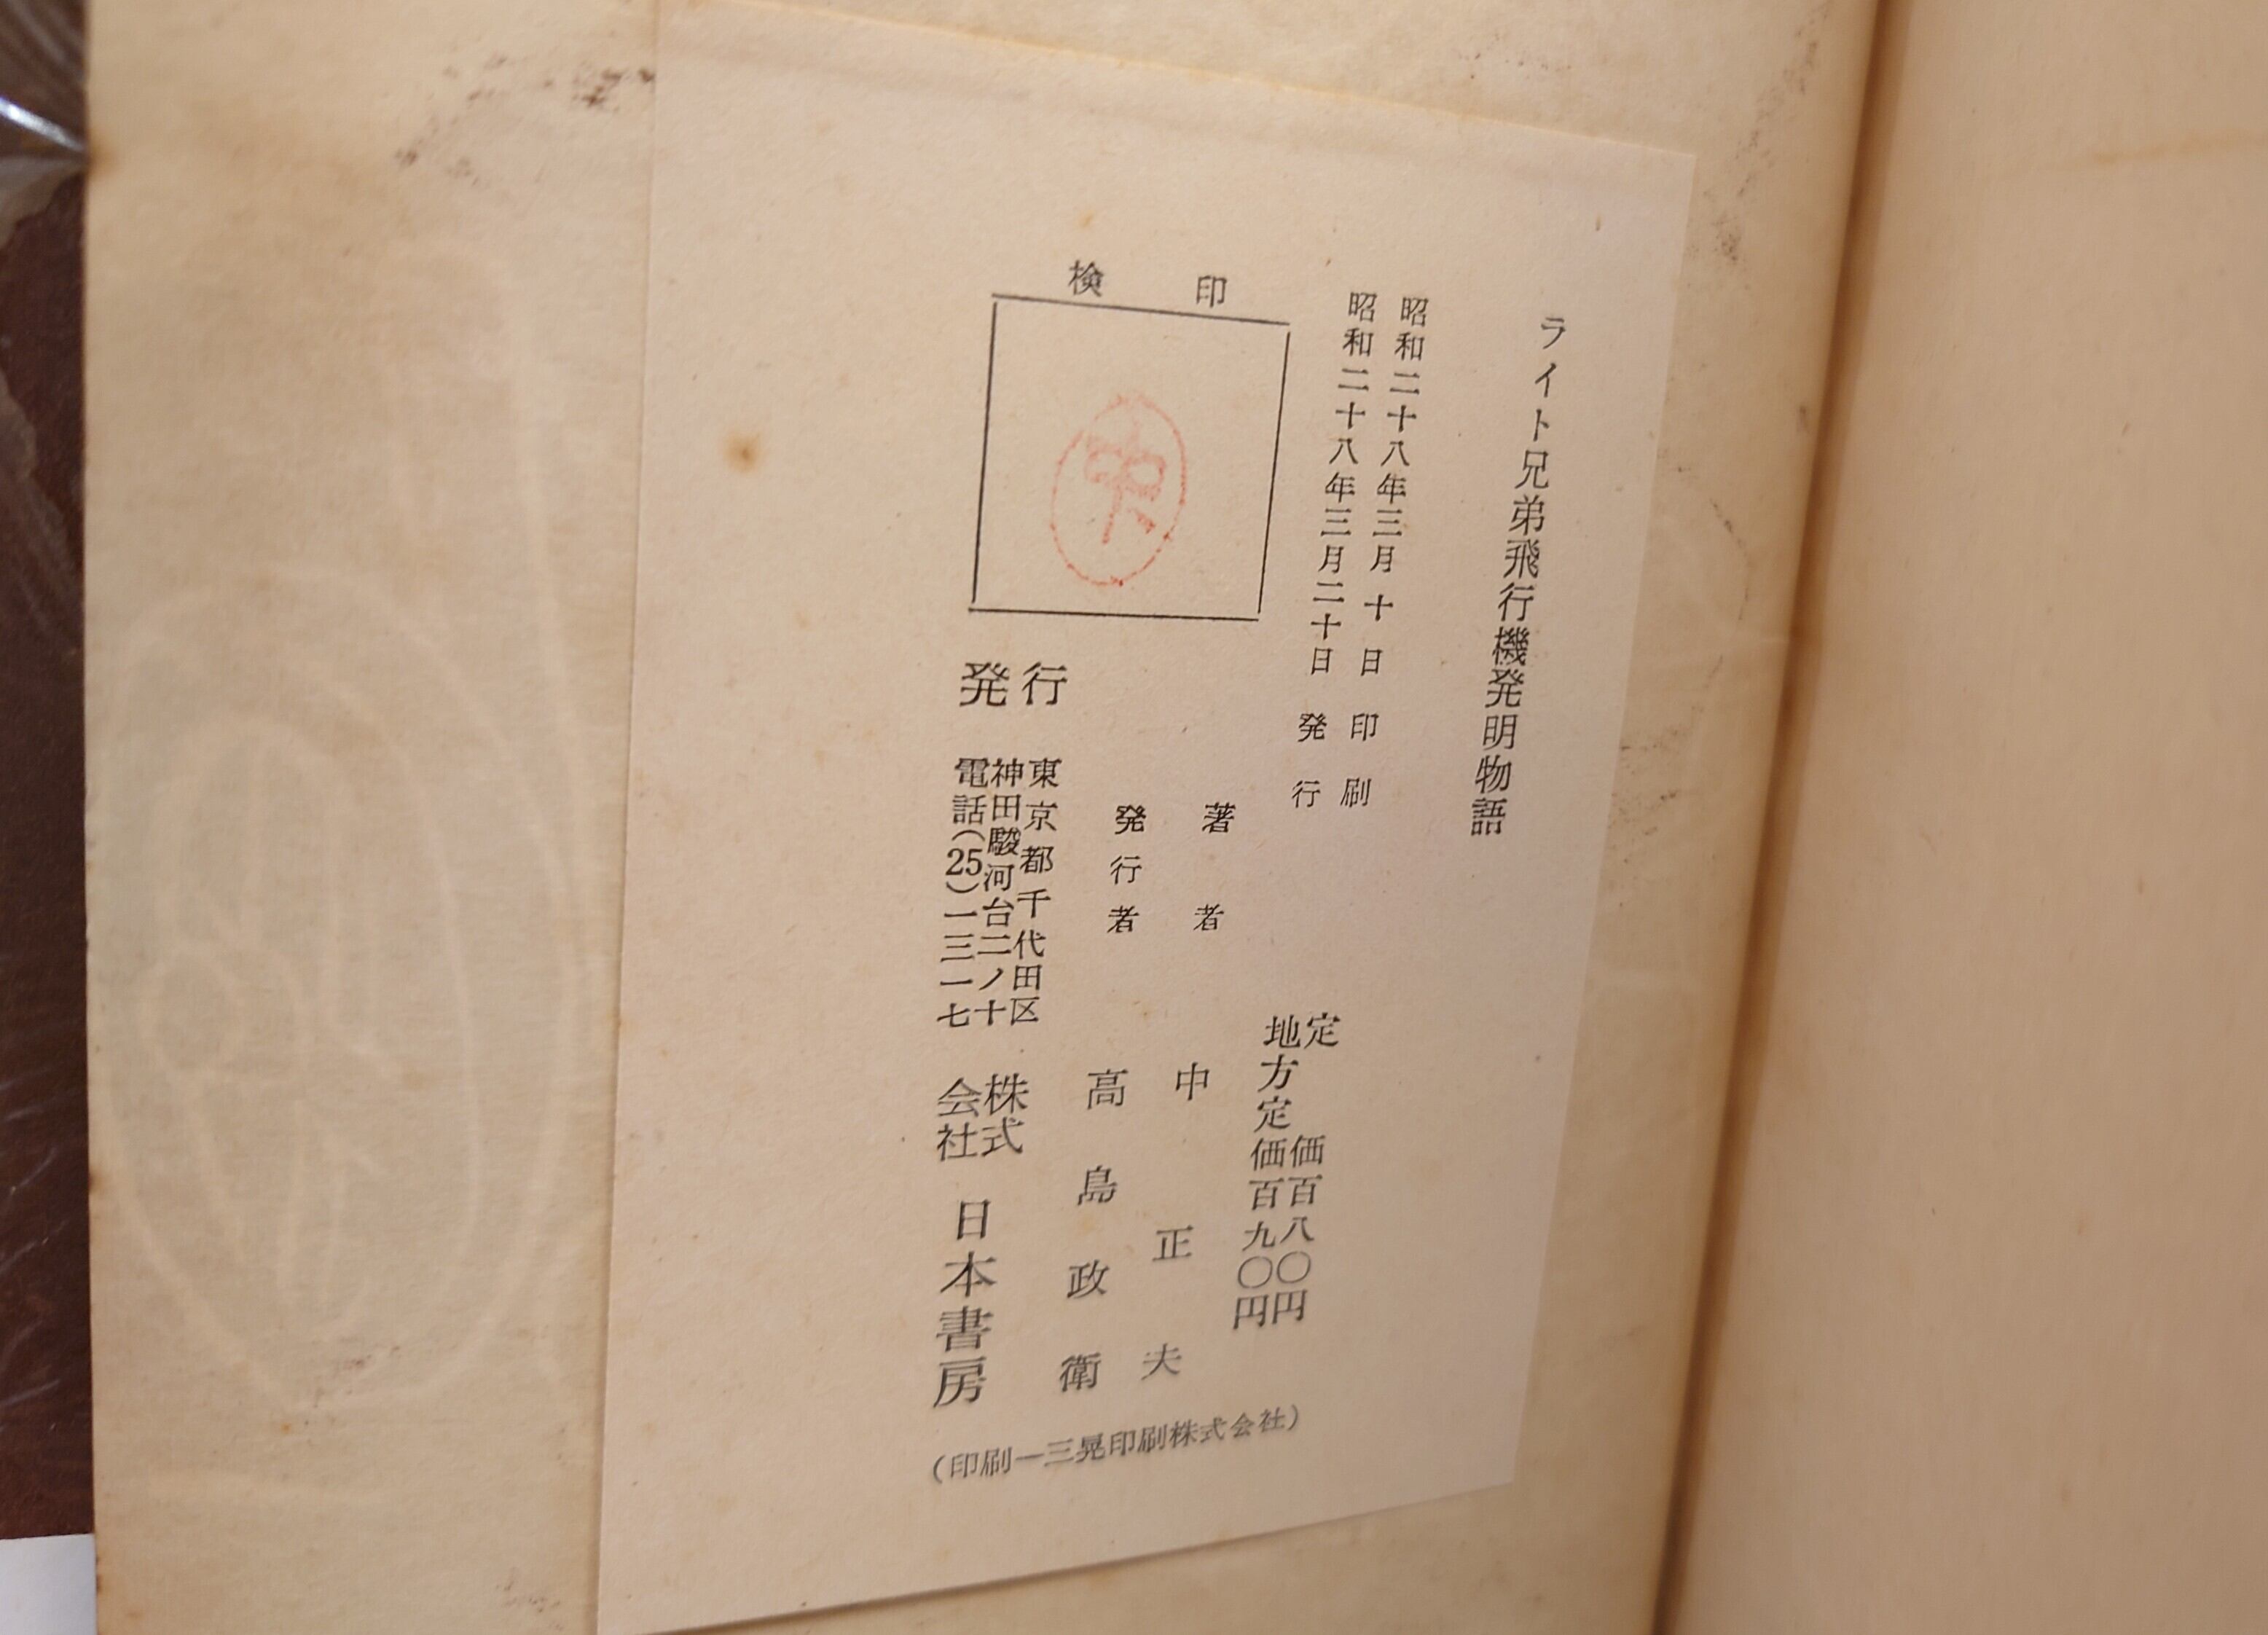 ライト兄弟飛行機発明物語
昭和二十八年三月十日印刷
昭和二十八年三月二十日発行
定価百八〇円
地方定価百九〇円
検印
著者 中正夫
発行者 高島政衛
発行
東京都千代田区
神田駿河台二ノ十
電話(25)一三一七
株式会社 日本書房
(印刷―三晃印刷株式会社)